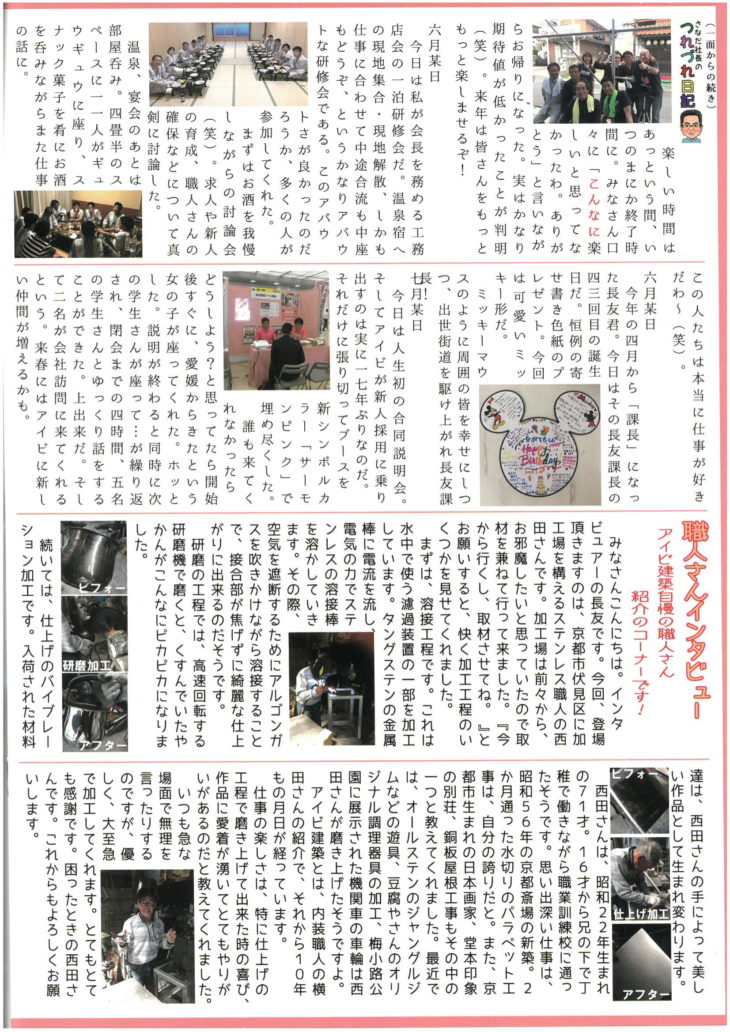 （一面からの続き）
さなだ社長の
つれづれ日記
楽しい時間は
あっという間、い
つのまにか終了時
間に。みなさん口
々に「こんなに楽
しいと思ってな
かったわ。ありが
とう」と言いなが
らお帰りになった。実はかなり
期待値が低かったことが判明
（笑）。来年は皆さんをもっと
もっと楽しませるぞ！
六月某日
今日は私が会長を務める工務
店会の一泊研修会だ。温泉宿へ
の現地集合・現地解散、しかも
仕事に合わせて中途合流も中座
もどうぞ、というかなりアバウ
トな研修会である。このアバウ
トさが良かったのだ
ろうか、多くの人が
参加してくれた。
まずはお酒を我慢
しながらの討論会
（笑）。求人や新人
の育成、職人さんの
確保などについて真
剣に討論した。
温泉、宴会のあとは
部屋呑み。四畳半のス
ペースに一一人がギュ
ウギュウに座り、ス
ナック菓子を肴にお酒
を呑みながらまた仕事
の話に。
この人たちは本当に仕事が好き
だわ～（笑）。
六月某日
今年の四月から「課長」になっ
た長友君。今日はその長友課長の
四三回目の誕生
日だ。恒例の寄
せ書き色紙のプ
レゼント。今回
は可愛いミッ
キー形だ。
ミッキーマウ
スのように周囲の皆を幸せにしつ
つ、出世街道を駆け上がれ長友課
長！
七月某日
今日は人生初の合同説明会。
そしてアイビが新人採用に乗り
出すのは実に一七年ぶりなのだ。
それだけに張り切ってブースを
新シンボルカ
ラー「サーモ
ンピンク」で
埋め尽くした。
誰も来てく
れなかったら
どうしよう？と思ってたら開始
後すぐに、愛媛からきたという
女の子が座ってくれた。ホッと
した。説明が終わると同時に次
の学生さんが座って…が繰り返
され、閉会までの四時間、五名
の学生さんとゆっくり話をする
ことができた。上出来だ。そし
て二名が会社訪問に来てくれる
という。来春にはアイビに新し
い仲間が増えるかも。
職人さんインタビュー
アイビ建築自慢の職人さん
紹介のコーナーです！
みなさんこんにちは。インタ
ビュアーの長友です。今回、登場
頂きますのは、京都市伏見区に加
工場を構えるステンレス職人の西
田さんです。加工場は前々から、
お邪魔したいと思っていたので取
材を兼ねて行って来ました。『今
から行くし、取材させてね。』と
お願いすると、快く加工工程のい
くつかを見せてくれました。
まずは、溶接工程です。これは
水中で使う濾過装置の一部を加工
しています。タングステンの金属
棒に電流を流し、
電気の力でステ
ンレスの溶接棒
を溶かしていき
ます。その際、
空気を遮断するためにアルゴンガ
スを吹きかけながら溶接すること
で、接合部が焦げずに綺麗な仕上
がりに出来るのだそうです。
研磨の工程では、高速回転する
研磨機で磨くと、くすんでいたや
かんがこんなにピカピカになりま
した。
ビフォー
研磨加工
アフター
続いては、仕上げのバイブレー
ション加工です。入荷された材料
達は、西田さんの手によって美し
い作品として生まれ変わります。
ビフォー
仕上げ加工
アフター
西田さんは、昭和22年生まれ
の71才。16才から兄の下で丁
稚で働きながら職業訓練校に通っ
たそうです。思い出深い仕事は、
昭和56年の京都斎場の新築。2
か月通った水切りのパラペット工
事は、自分の誇りだと。また、京
都市生まれの日本画家、堂本印象
の別荘、銅板屋根工事もその中の
一つと教えてくれました。最近で
は、オールステンのジャングルジ
ムなどの遊具、豆腐やさんのオリ
ジナル調理器具の加工、梅小路公
園に展示された機関車の車輪は西
田さんが磨き上げたそうですよ。
アイビ建築とは、内装職人の横
田さんの紹介で、それから10年
もの月日が経っています。
仕事の楽しさは、特に仕上げの
工程で磨き上げて出来た時の喜び、
作品に愛着が湧いてとてもやりが
いがあるのだと教えてくれました。
いつも急な
場面で無理を
言ったりする
のですが、優
しく、大至急
で加工してくれます。とてもとて
も感謝です。困ったときの西田さ
んです。これからもよろしくお願
いします。